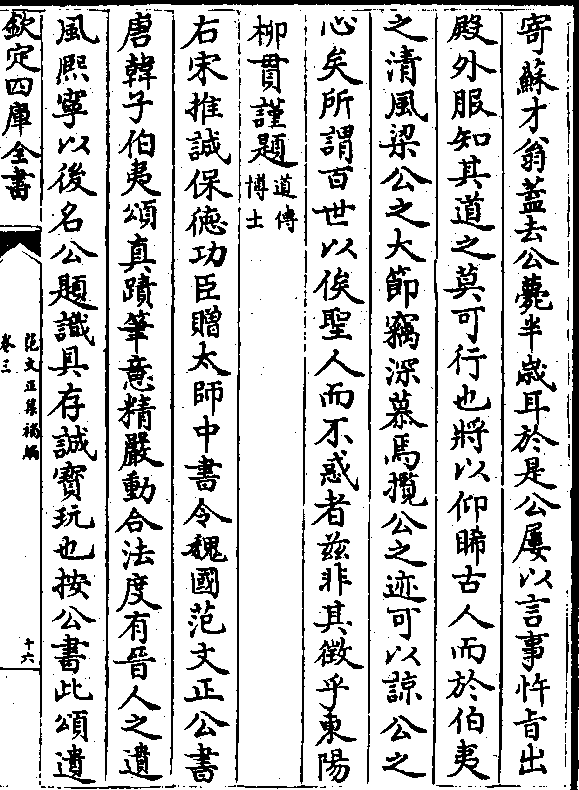 寄蘇才翁蓋去公薨半歲耳於是公屢以言事忤旨出
殿外服知其道之莫可行也將以仰睎古人而於伯夷
之清風梁公之大節竊深慕焉攬公之迹可以諒公之
心矣所謂百世以俟聖人而不惑者兹非其徵乎東陽
柳貫謹題道傳博士
右宋推誠保德功臣贈太師中書令魏國范文正公書
唐韓子伯夷頌真蹟筆意精嚴動合法度有晉人之遺
風熙寧以後名公題識具存誠寳玩也按公書此頌遺
欽定四庫全書
范文正集補編
卷三
十六